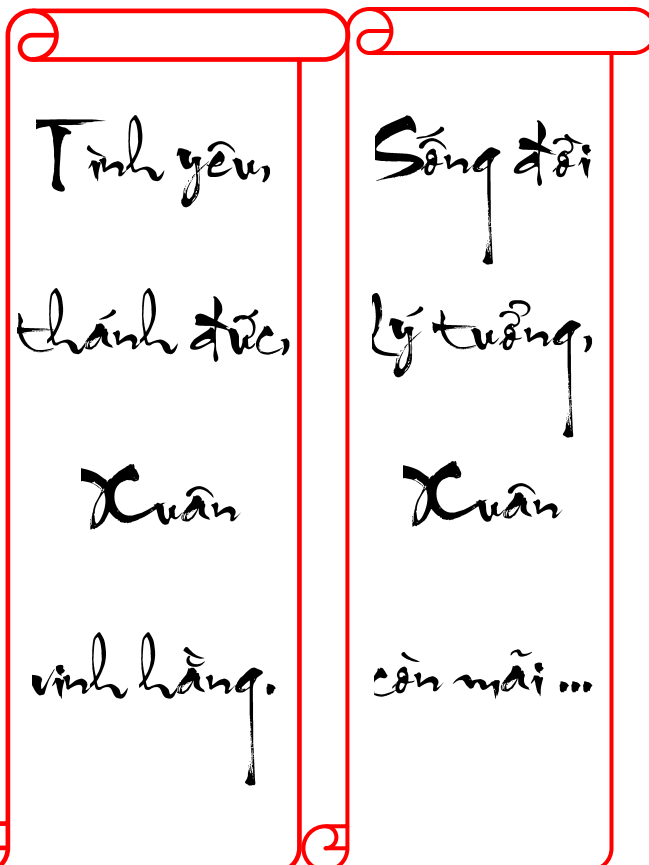 Tình yêu,
thánh đức,
Xuân
vinh hằng.
Sống đời
Lý tưởng,
Xuân
còn mãi ...